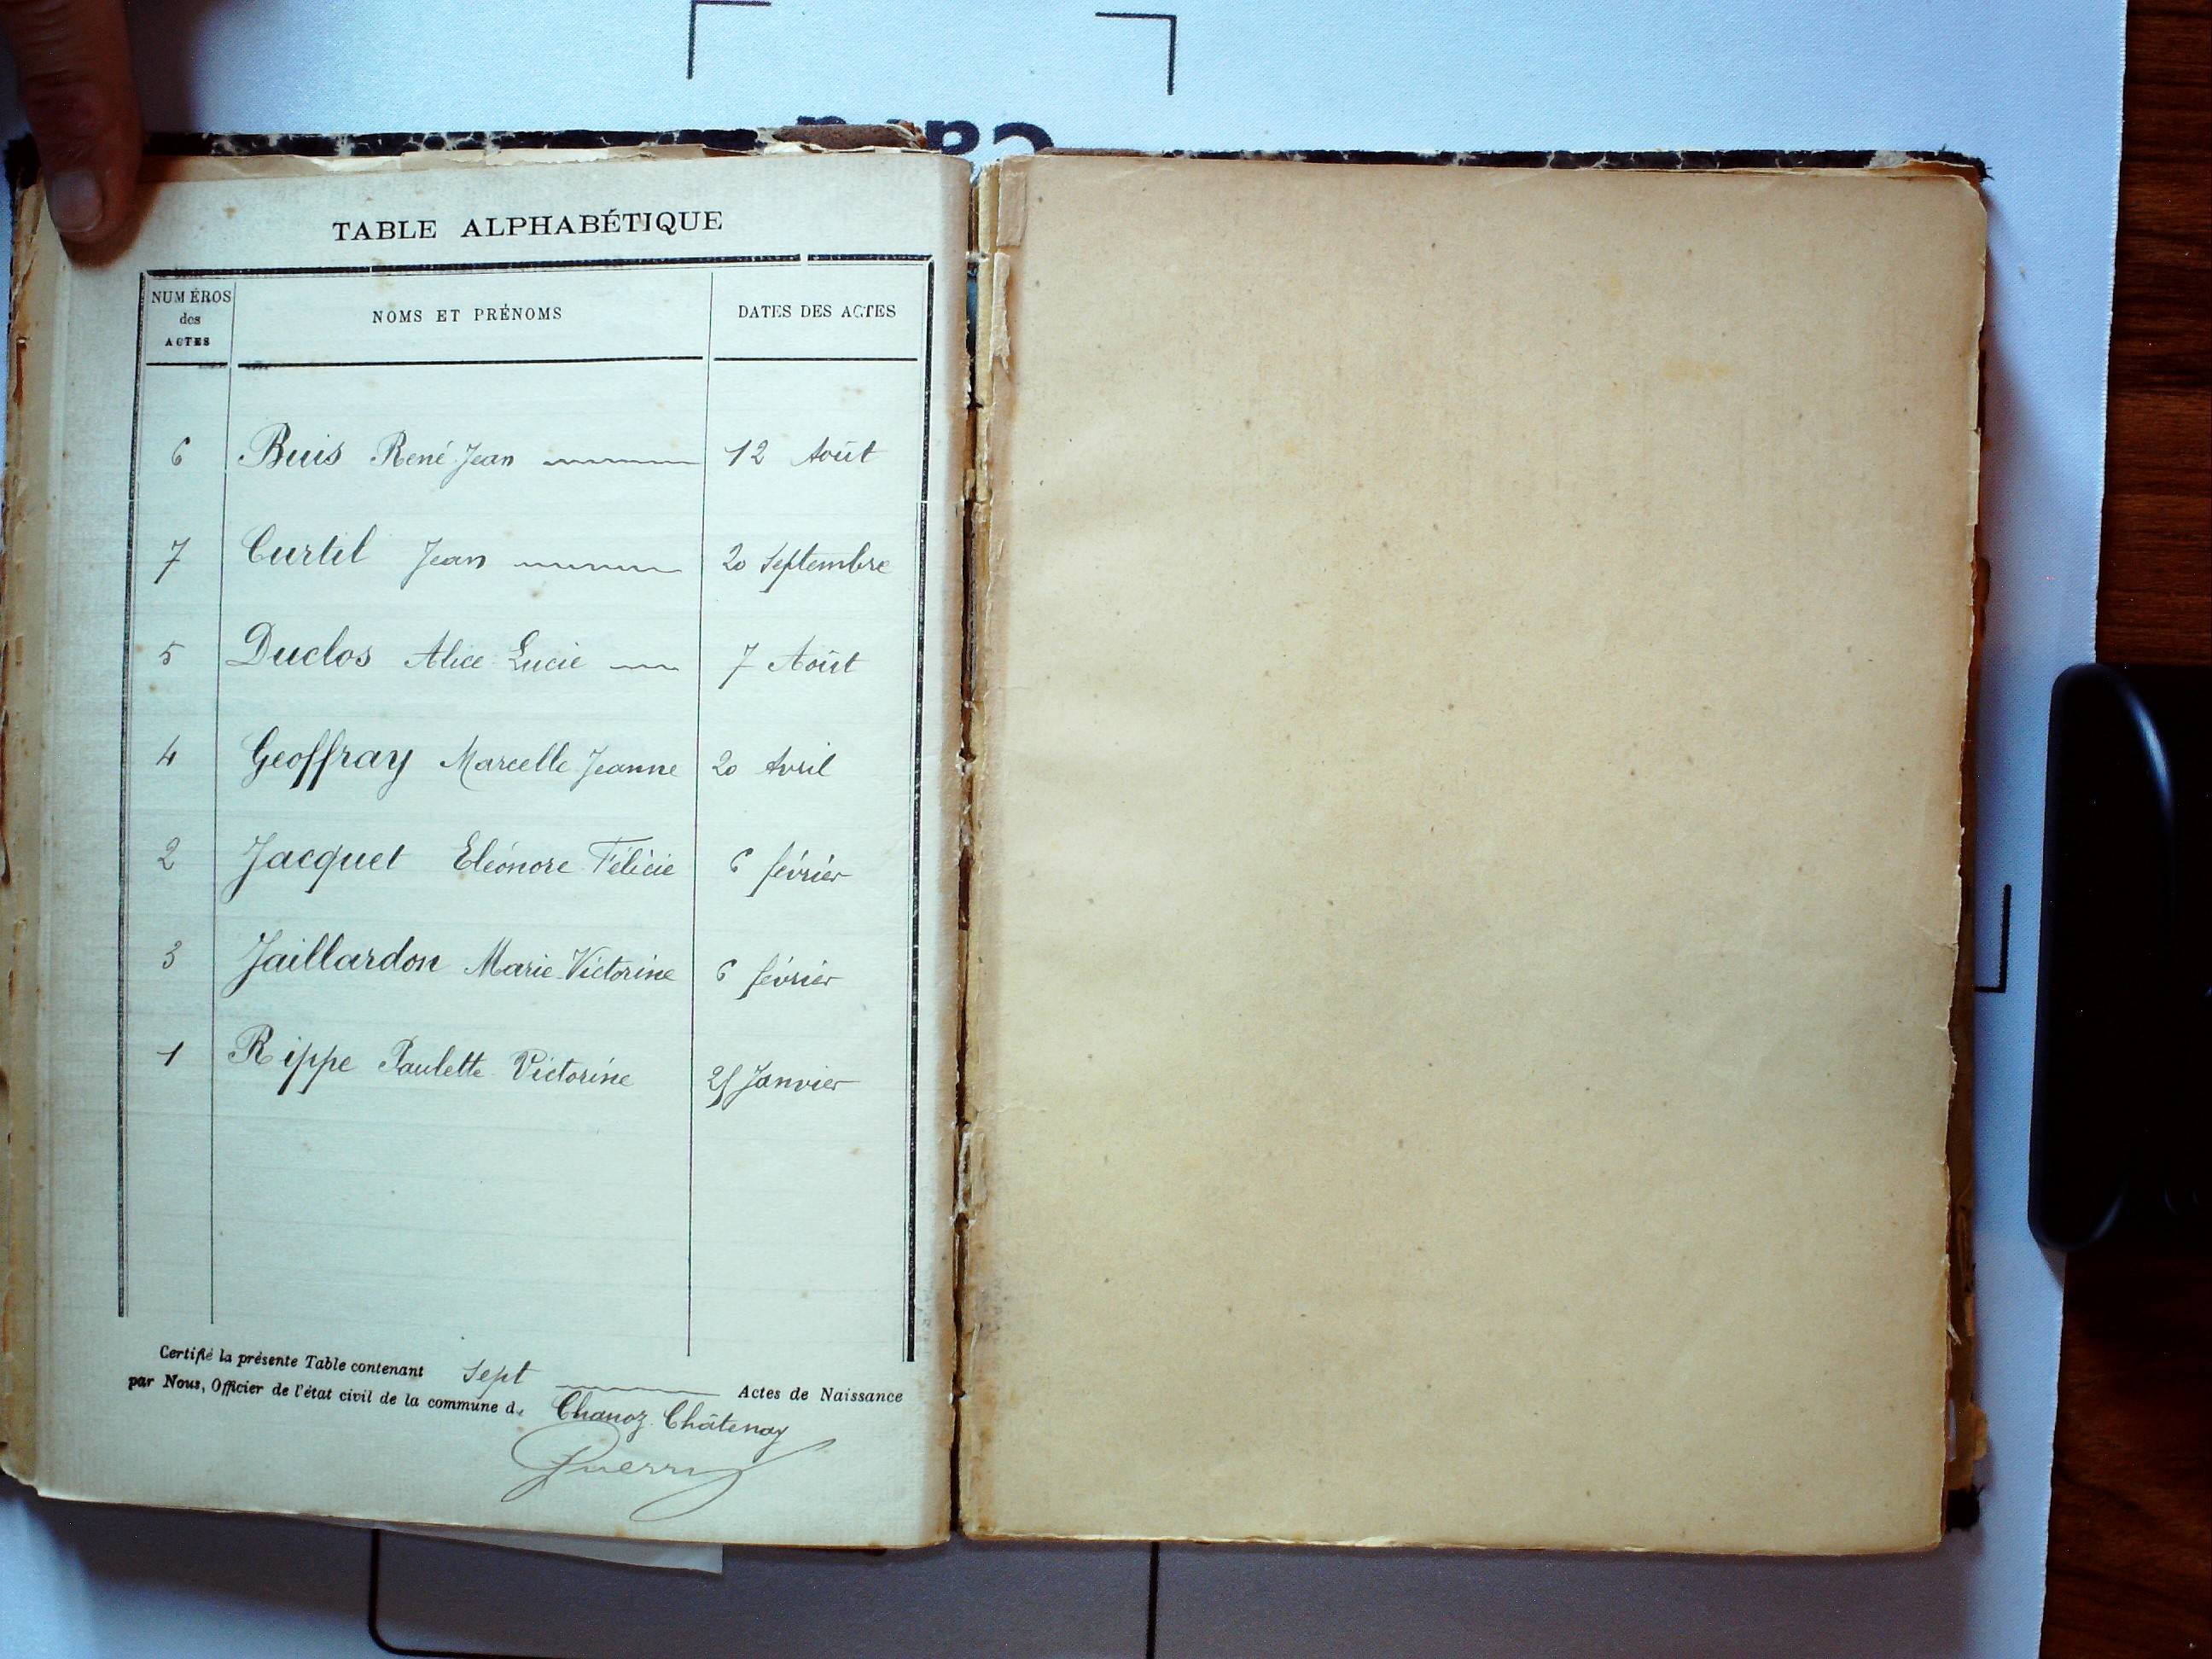 TABLE ALPHABÉTIQUE
NUMÉROS des ACTES NOMS ET PRÉNOMS DATES DES ACTES
6 Buis René Jean 12 Août
7 Curtil Jean 20 Septembre
5 Duclos Alice Lucie 7 Août
4 Geoffray Marcelle Jeanne 20 Avril
2 Jacquet Eléonore Félicie 6 février
3 Jaillardon Marie Victorine 6 février
1 Rippe Paulette Victorine 25 Janvier
Certifié la présente Table contenant Sept Actes de Naissance
par Nous, Officier de l'état civil de la commune de Chanoz-Châtenay